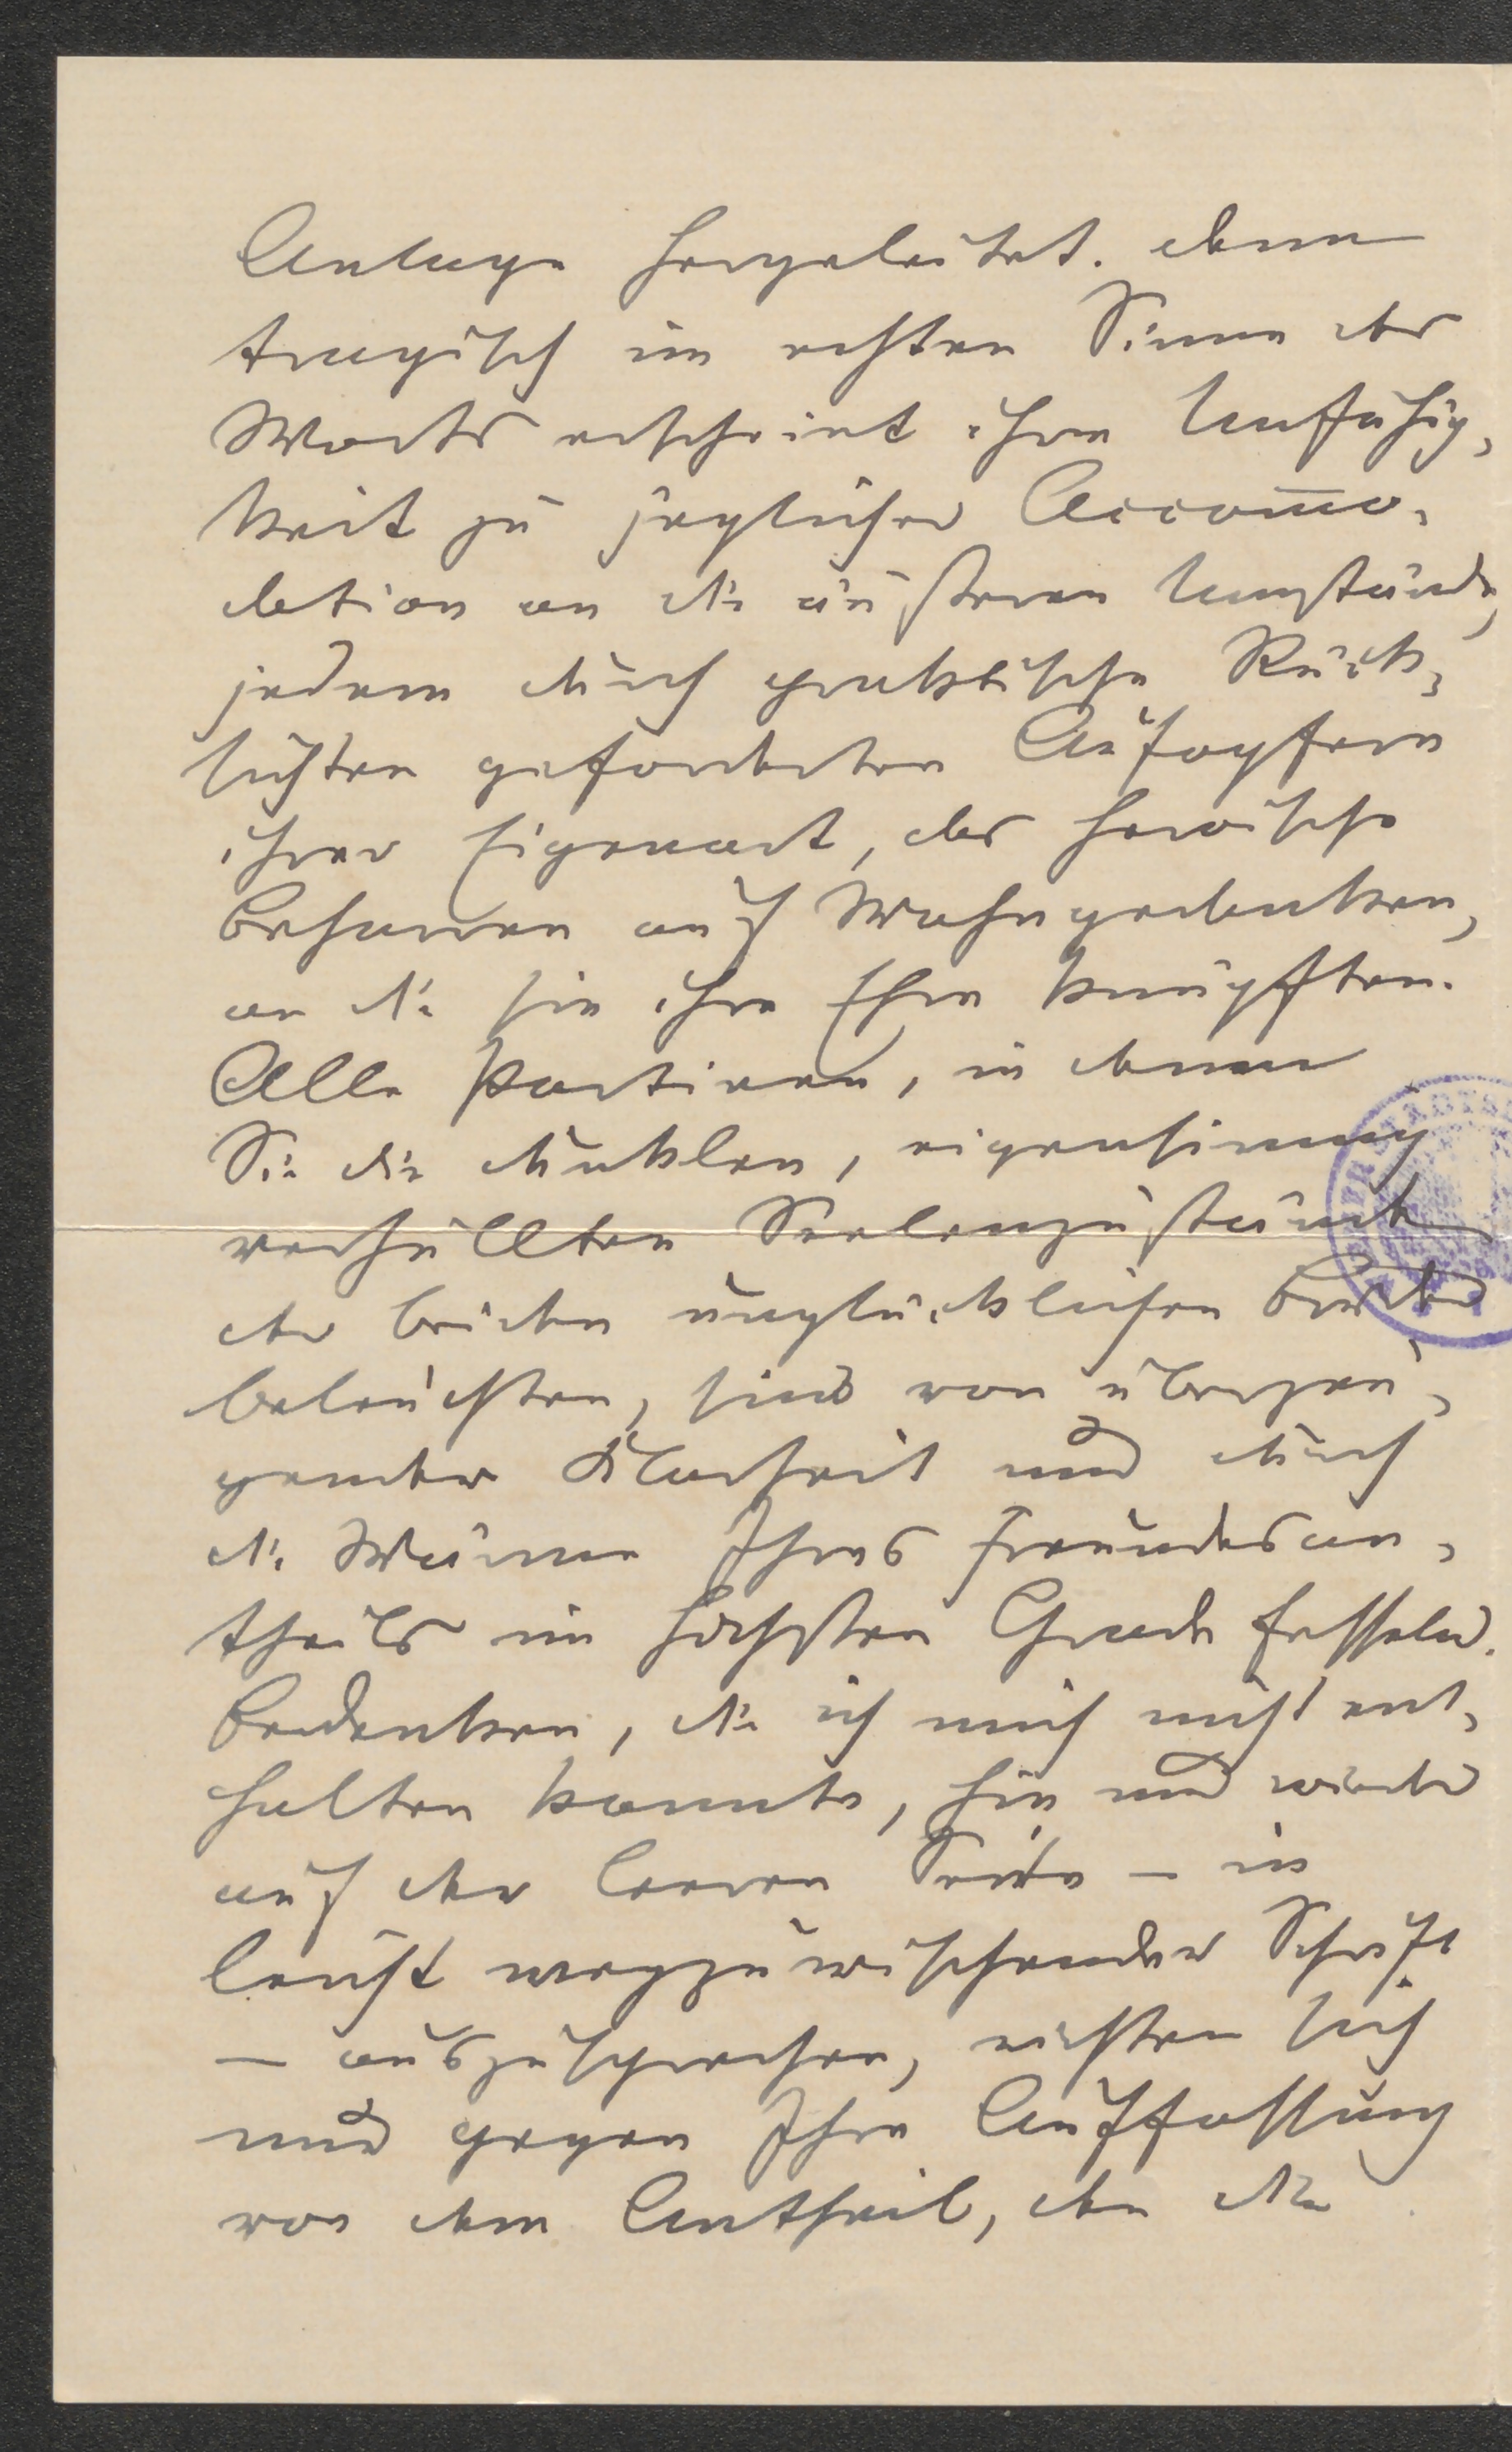 Anlage hergeleitet. denn
tragisch im echten Sinne des
Worts erscheint ihre Unfähig-
keit zu jeglicher Accom̅o-
dation an die äußeren Umstände,
jedem durch praktische Rück-
sichten geforderten Aufopfern
ihrer Eigenart, das heroische
Beharren auf Wahngedanken,
an die sie ihre Ehre knüpften.
Alle Partieen, in denen
Sie die dunklen, eigensinnig
verhüllten Seelenzustände
der beiden unglücklichen Brüder
beleuchten, sind von überzeu-
gender Klarheit und durch
die Wärme Ihres Freundesan-
theils im höchsten Grade fesselnd.
Bedenken, die ich mich nicht ent-
halten konnte, hin und wieder
auf der leeren Seite – in
leicht wegzuwischender Schrift
– auszusprechen, richten sich
nur gegen Ihre Auffassung
von dem Antheil, den die